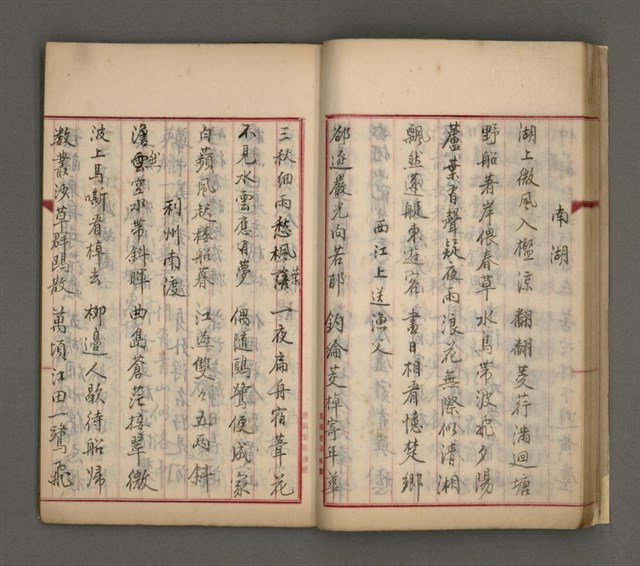 南湖
湖上微風入檻涼 翻翻菱荇滿迴塘
野船著岸偎春草 水鳥帶波飛夕陽
蘆葉有聲疑夜雨 浪花無際似瀟湘
飄然蓬艇東遊客 盡日相看憶楚鄉
西江上送漁人
卻逐嚴光向若耶 釣綸菱棹寄年華
三秋細雨愁楓葉 一夜扁舟宿葦花
不見水雲應有夢 偶隨鷗鷺便成家
白蘋風起樓船暮 江燕雙々五兩斜
利州南渡
澹然空水帶斜暉 曲島蒼茫接翠微
波上馬嘶看棹去 柳邊人歇待船歸
數叢沙草群鷗散 萬頃江田一鷺飛